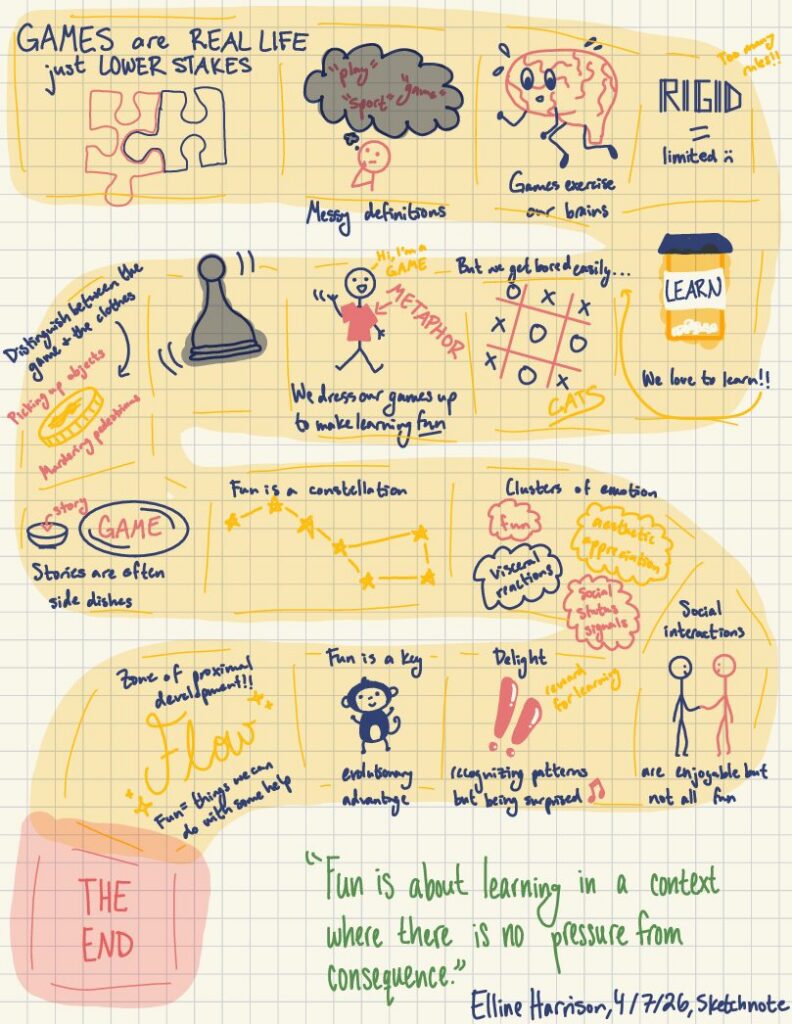 GAMES are REAL LIFE
just LOWER STAKES
"play"
"sport"
"game"
Messy definitions
Games exercise
our brains
Too many
rules!!
RIGID
=
limited :(
LEARN
We love to learn!!
But we get bored easily...
O X X
X O O
X O X
CATS
Hi, I'm a
GAME
METAPHOR
We dress our games up
to make learning fun
Distinguish between the
game + the clothes
Picking up objects
Murdering pedestrians
story
GAME
Stories are often
side dishes
Fun is a constellation
Clusters of emotion
fun
aesthetic
appreciation
visceral
reactions
social
status
signals
Social
interactions
are enjoyable but
not all fun
Delight
reward
for learning
recognizing patterns
but being surprised
Fun is a key
evolutionary
advantage
Zone of proximal
development!!
Flow
Fun = things we can
do with some help
THE
END
"Fun is about learning in a context
where there is no pressure from
consequence."
Elline Harrison, 4/7/26, Sketchnote